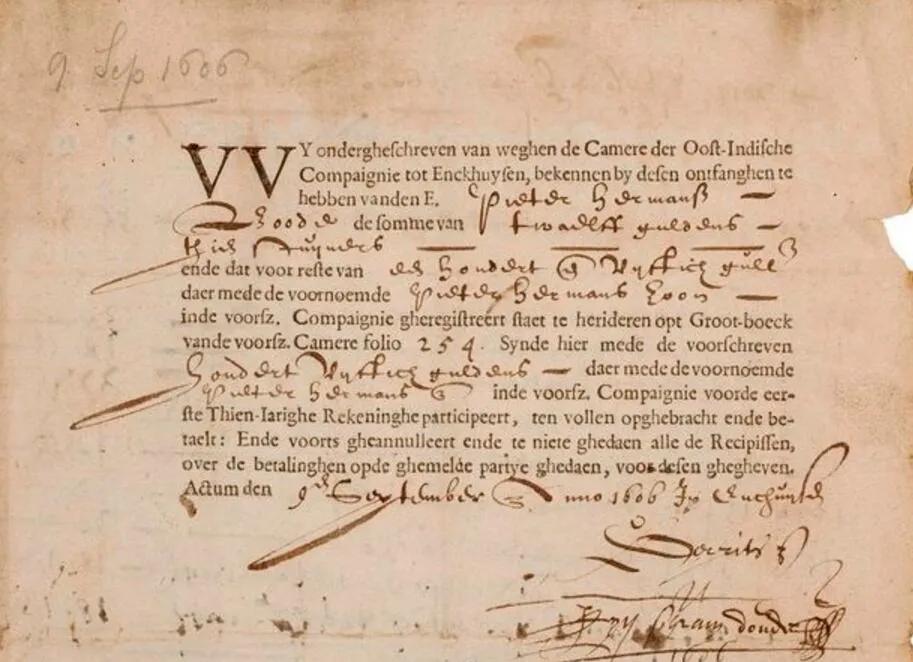 9 Sep 1606
VVY ondergheschreven van weghen de Camere der Oost-Indische
Compagnie tot Enckhuysen, bekennen by desen ontfanghen te
hebben vanden E. Pieter Hermansz
de somme van twaelff guldens
thien stuyvers
ende dat voor reste van een hondert Vyftich gull
daer mede de voornoemde Pieter Hermans
inde voorsz. Compagnie gheregistreert staet te herideren opt Groot-boeck
vande voorsz. Camere folio 254. Synde hier mede de voorschreven
hondert Vyftich guldens daer mede de voornoemde
Pieter Hermans inde voorsz. Compagnie voorde eer-
ste Thien-Iarighe Rekeninghe participeert, ten vollen opghebracht ende be-
taelt: Ende voorts gheannulleert ende te niete ghedaen alle de Recipissen,
over de betalinghen opde ghemelde partye ghedaen, voor desen ghegheven.
Actum den 9en September Anno 1606 In Enchuysen